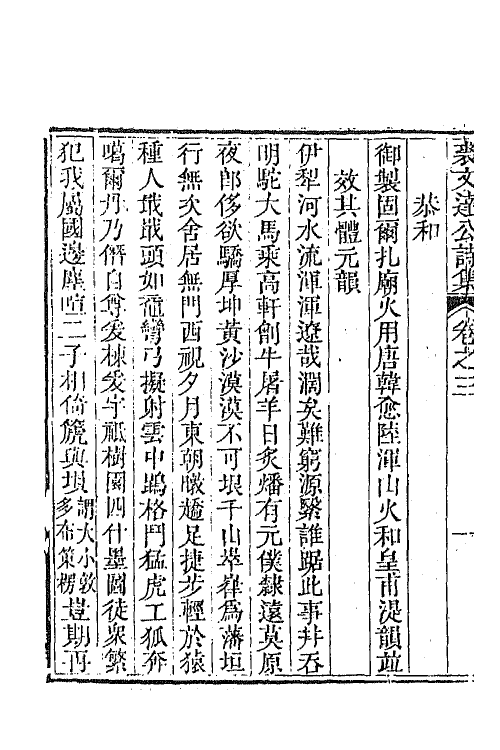 裘文達公詩集 卷之二 一
恭和
御製固爾扎廟火用唐韓愈陸渾山火和皇甫湜韻並
效其體元韻
伊犂河水流渾渾遼哉濶矣難窮源緊誰踞此事幷吞
明駝大馬乘高軒創牛屠羊日炙燔有元僕隸遠莫原
夜郎侈欲驕厚坤黃沙漠漠不可垠千山崒嵂為藩垣
行無次舍居無門西視夕月東朝暾趫足捷步輕於猿
種人戢戢頭如黿彎弓擬射雲中鵾格鬥猛虎工狐奔
噶爾丹乃僭自尊爰棟爰宇祇樹園四什墨圖徒衆繁
犯我屬國邊塵喧二子相倚篪與塤謂大小敦多布策楞豈期再